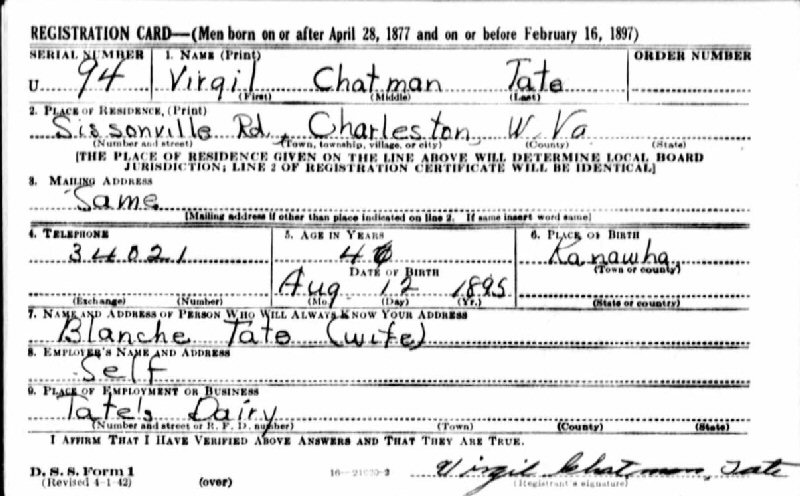 REGISTRATION CARD—(Men born on or after April 28, 1877 and on or before February 16, 1897)
SERIAL NUMBER 1. NAME (Print) ORDER NUMBER
U 94 Virgil Chatman Tate
(First) (Middle) (Last)
2. PLACE OF RESIDENCE, (Print)
Sissonville Rd, Charleston, W. Va
(Number and street) (Town, township, village, or city) (County) (State)
[THE PLACE OF RESIDENCE GIVEN ON THE LINE ABOVE WILL DETERMINE LOCAL BOARD
JURISDICTION; LINE 2 OF REGISTRATION CERTIFICATE WILL BE IDENTICAL]
3. MAILING ADDRESS
Same
[Mailing address if other than place indicated on line 2. If same insert word same]
4. TELEPHONE 5. AGE IN YEARS 6. PLACE OF BIRTH
34021 46 Kanawha
DATE OF BIRTH (Town or county)
Aug 12 1895
(Exchange) (Number) (Mo.) (Day) (Yr.) (State or country)
7. NAME AND ADDRESS OF PERSON WHO WILL ALWAYS KNOW YOUR ADDRESS
Blanche Tate (wife)
8. EMPLOYER'S NAME AND ADDRESS
Self
9. PLACE OF EMPLOYMENT OR BUSINESS
Tate's Dairy
(Number and street or R. F. D. number) (Town) (County) (State)
I AFFIRM THAT I HAVE VERIFIED ABOVE ANSWERS AND THAT THEY ARE TRUE.
D. S. S. Form 1
(Revised 4-1-42) (over) Virgil Chatman Tate
(Registrant's signature)